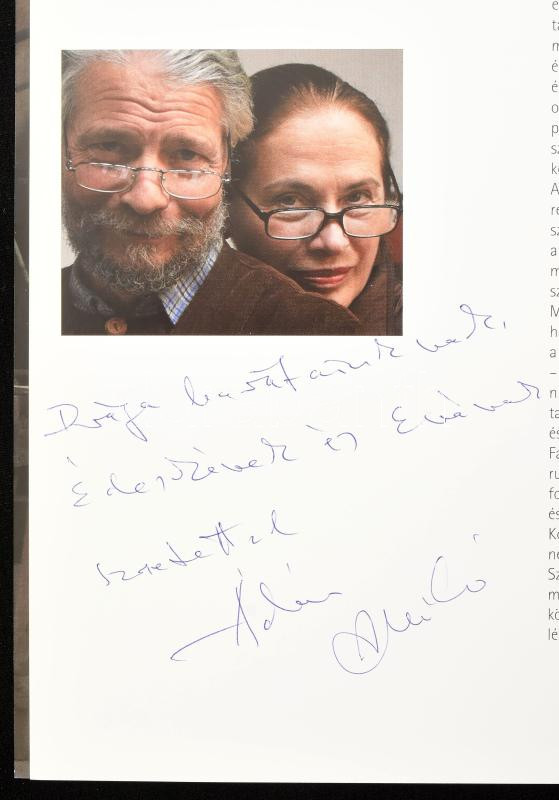 Drága barátainknak,
Édeskének és Évának
szeretettel
Ádám Anikó
é
ta
m
é
é
o
p
sz
kö
A
re
sz
a
m
sz
M
h
a
–
n
ta
és
Fa
ru
fo
és
Ko
ne
Sz
m
kö
lé